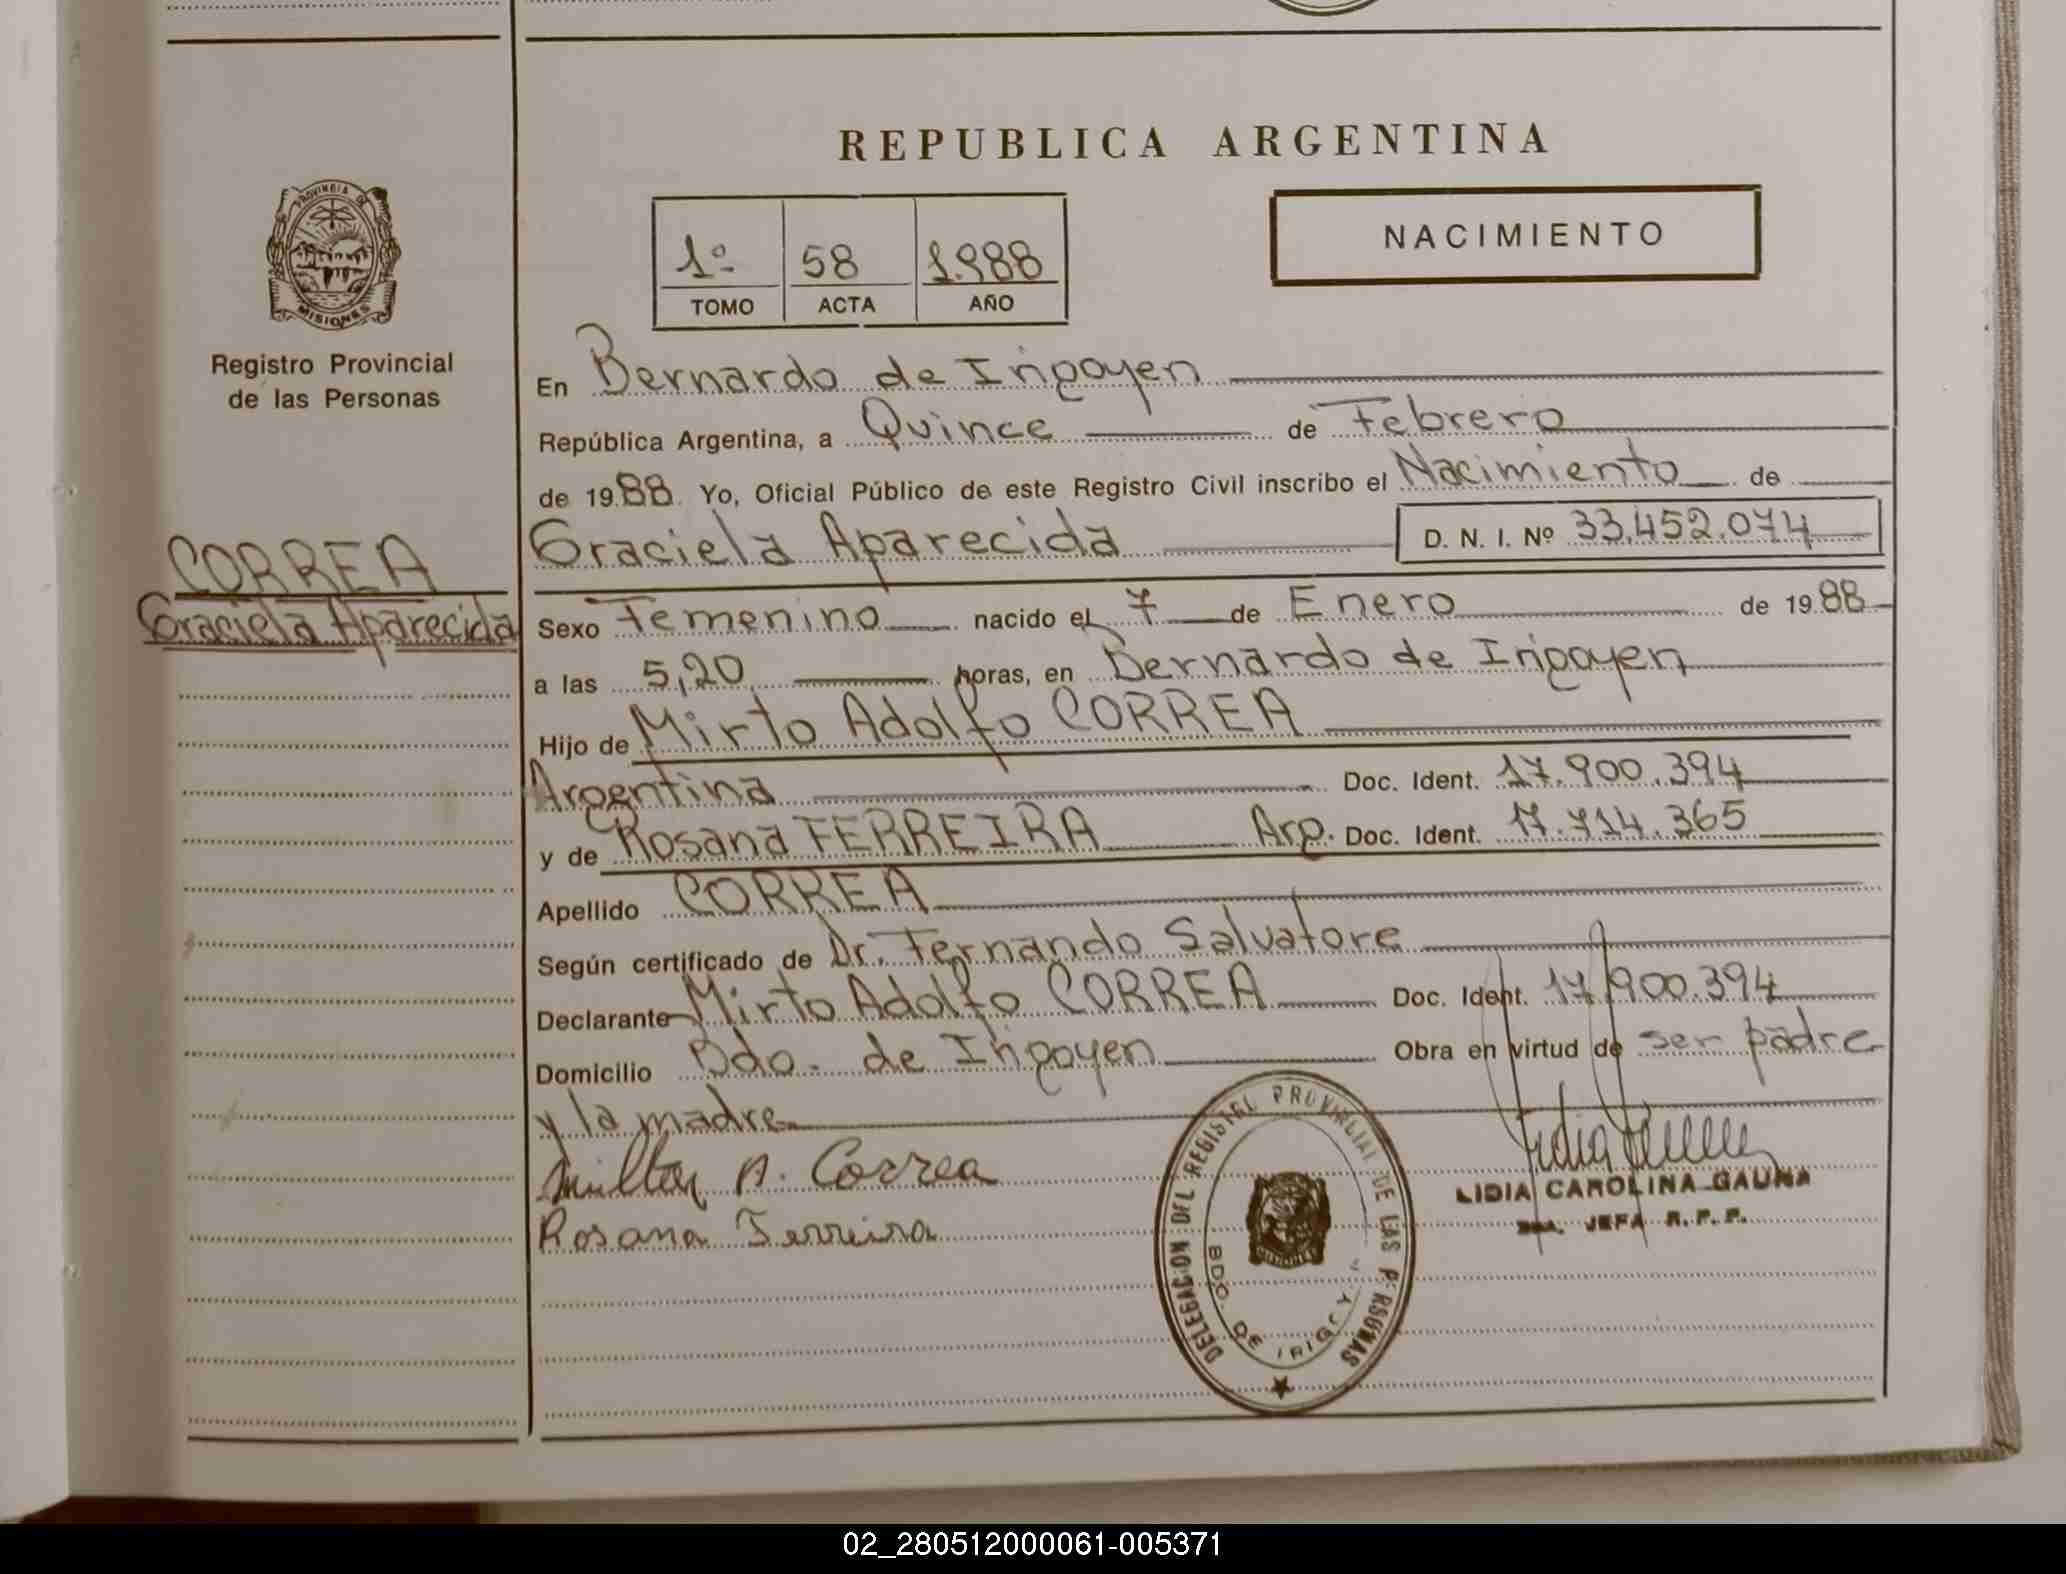 REPUBLICA ARGENTINA
PROVINCIA DE
MISIONES
Registro Provincial
de las Personas
1º 58 1.988
TOMO ACTA AÑO
NACIMIENTO
En Bernardo de Irigoyen
República Argentina, a Quince de Febrero
de 1988 Yo, Oficial Público de este Registro Civil inscribo el Nacimiento de
Graciela Aparecida D. N. I. Nº 33.452.074
CORREA
Graciela Aparecida
Sexo Femenino nacido el 7 de Enero de 1988
a las 5,20 horas, en Bernardo de Irigoyen
Hijo de Mirto Adolfo CORREA
Argentina Doc. Ident. 17.900.394
y de Rosana FERREIRA Arg. Doc. Ident. 17.714.365
Apellido CORREA
Según certificado de Dr. Fernando Salvatore
Declarante Mirto Adolfo CORREA Doc. Ident. 17.900.394
Domicilio Bdo. de Irigoyen Obra en virtud de ser padre
y la madre
A. Correa
Rosana Ferreira
DELEGACION DEL REGISTRO PROVINCIAL DE LAS PERSONAS
BDO. DE IRIGOY.
LIDIA CAROLINA GAUNA
JEFA R.P.P.
02_280512000061-005371